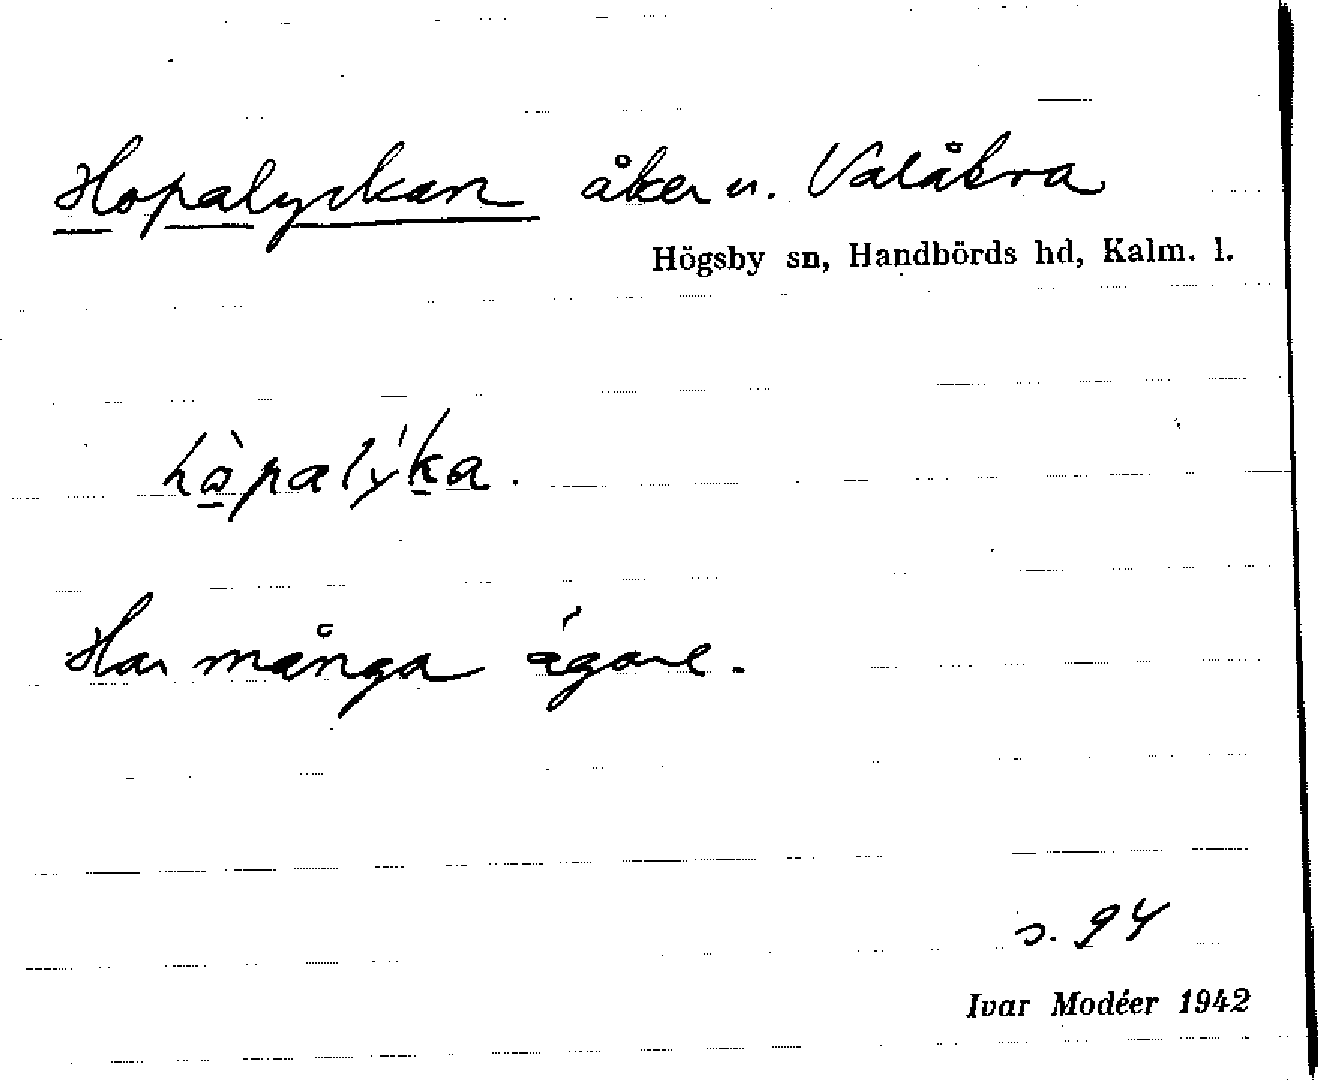 Hopalyckan åker u. Valåkra
Högsby sn, Handbörds hd, Kalm. l.
hò̲palýk̲a.
Har många ägare.
s. 94
Ivar Modéer 1942